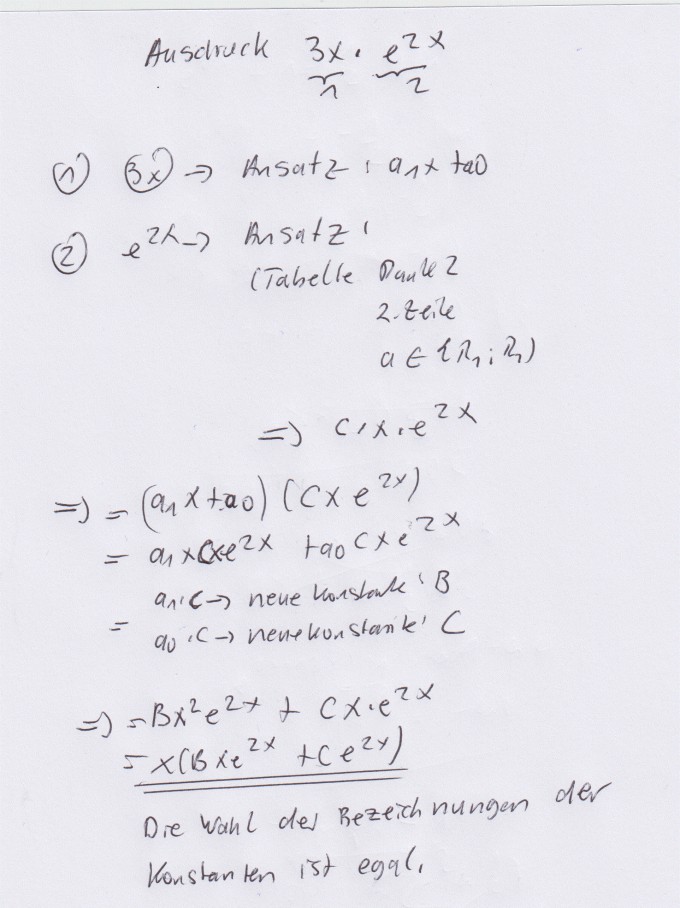 Ausdruck 3x · e^2x
1 2
① 3x → Ansatz : a1x + a0
② e^2x → Ansatz :
(Tabelle Punkt 2
2. Zeile
a ∈ {R1; R2)
=> C · x · e^2x
=> = (a1x + a0) (Cx e^2x)
= a1x Cxe^2x + a0 Cxe^2x
a1·C → neue Konstante : B
=
a0·C → neue Konstante : C
=> = Bx^2e^2x + Cx·e^2x
= x(Bxe^2x + Ce^2x)
Die Wahl der Bezeichnungen der
Konstanten ist egal.